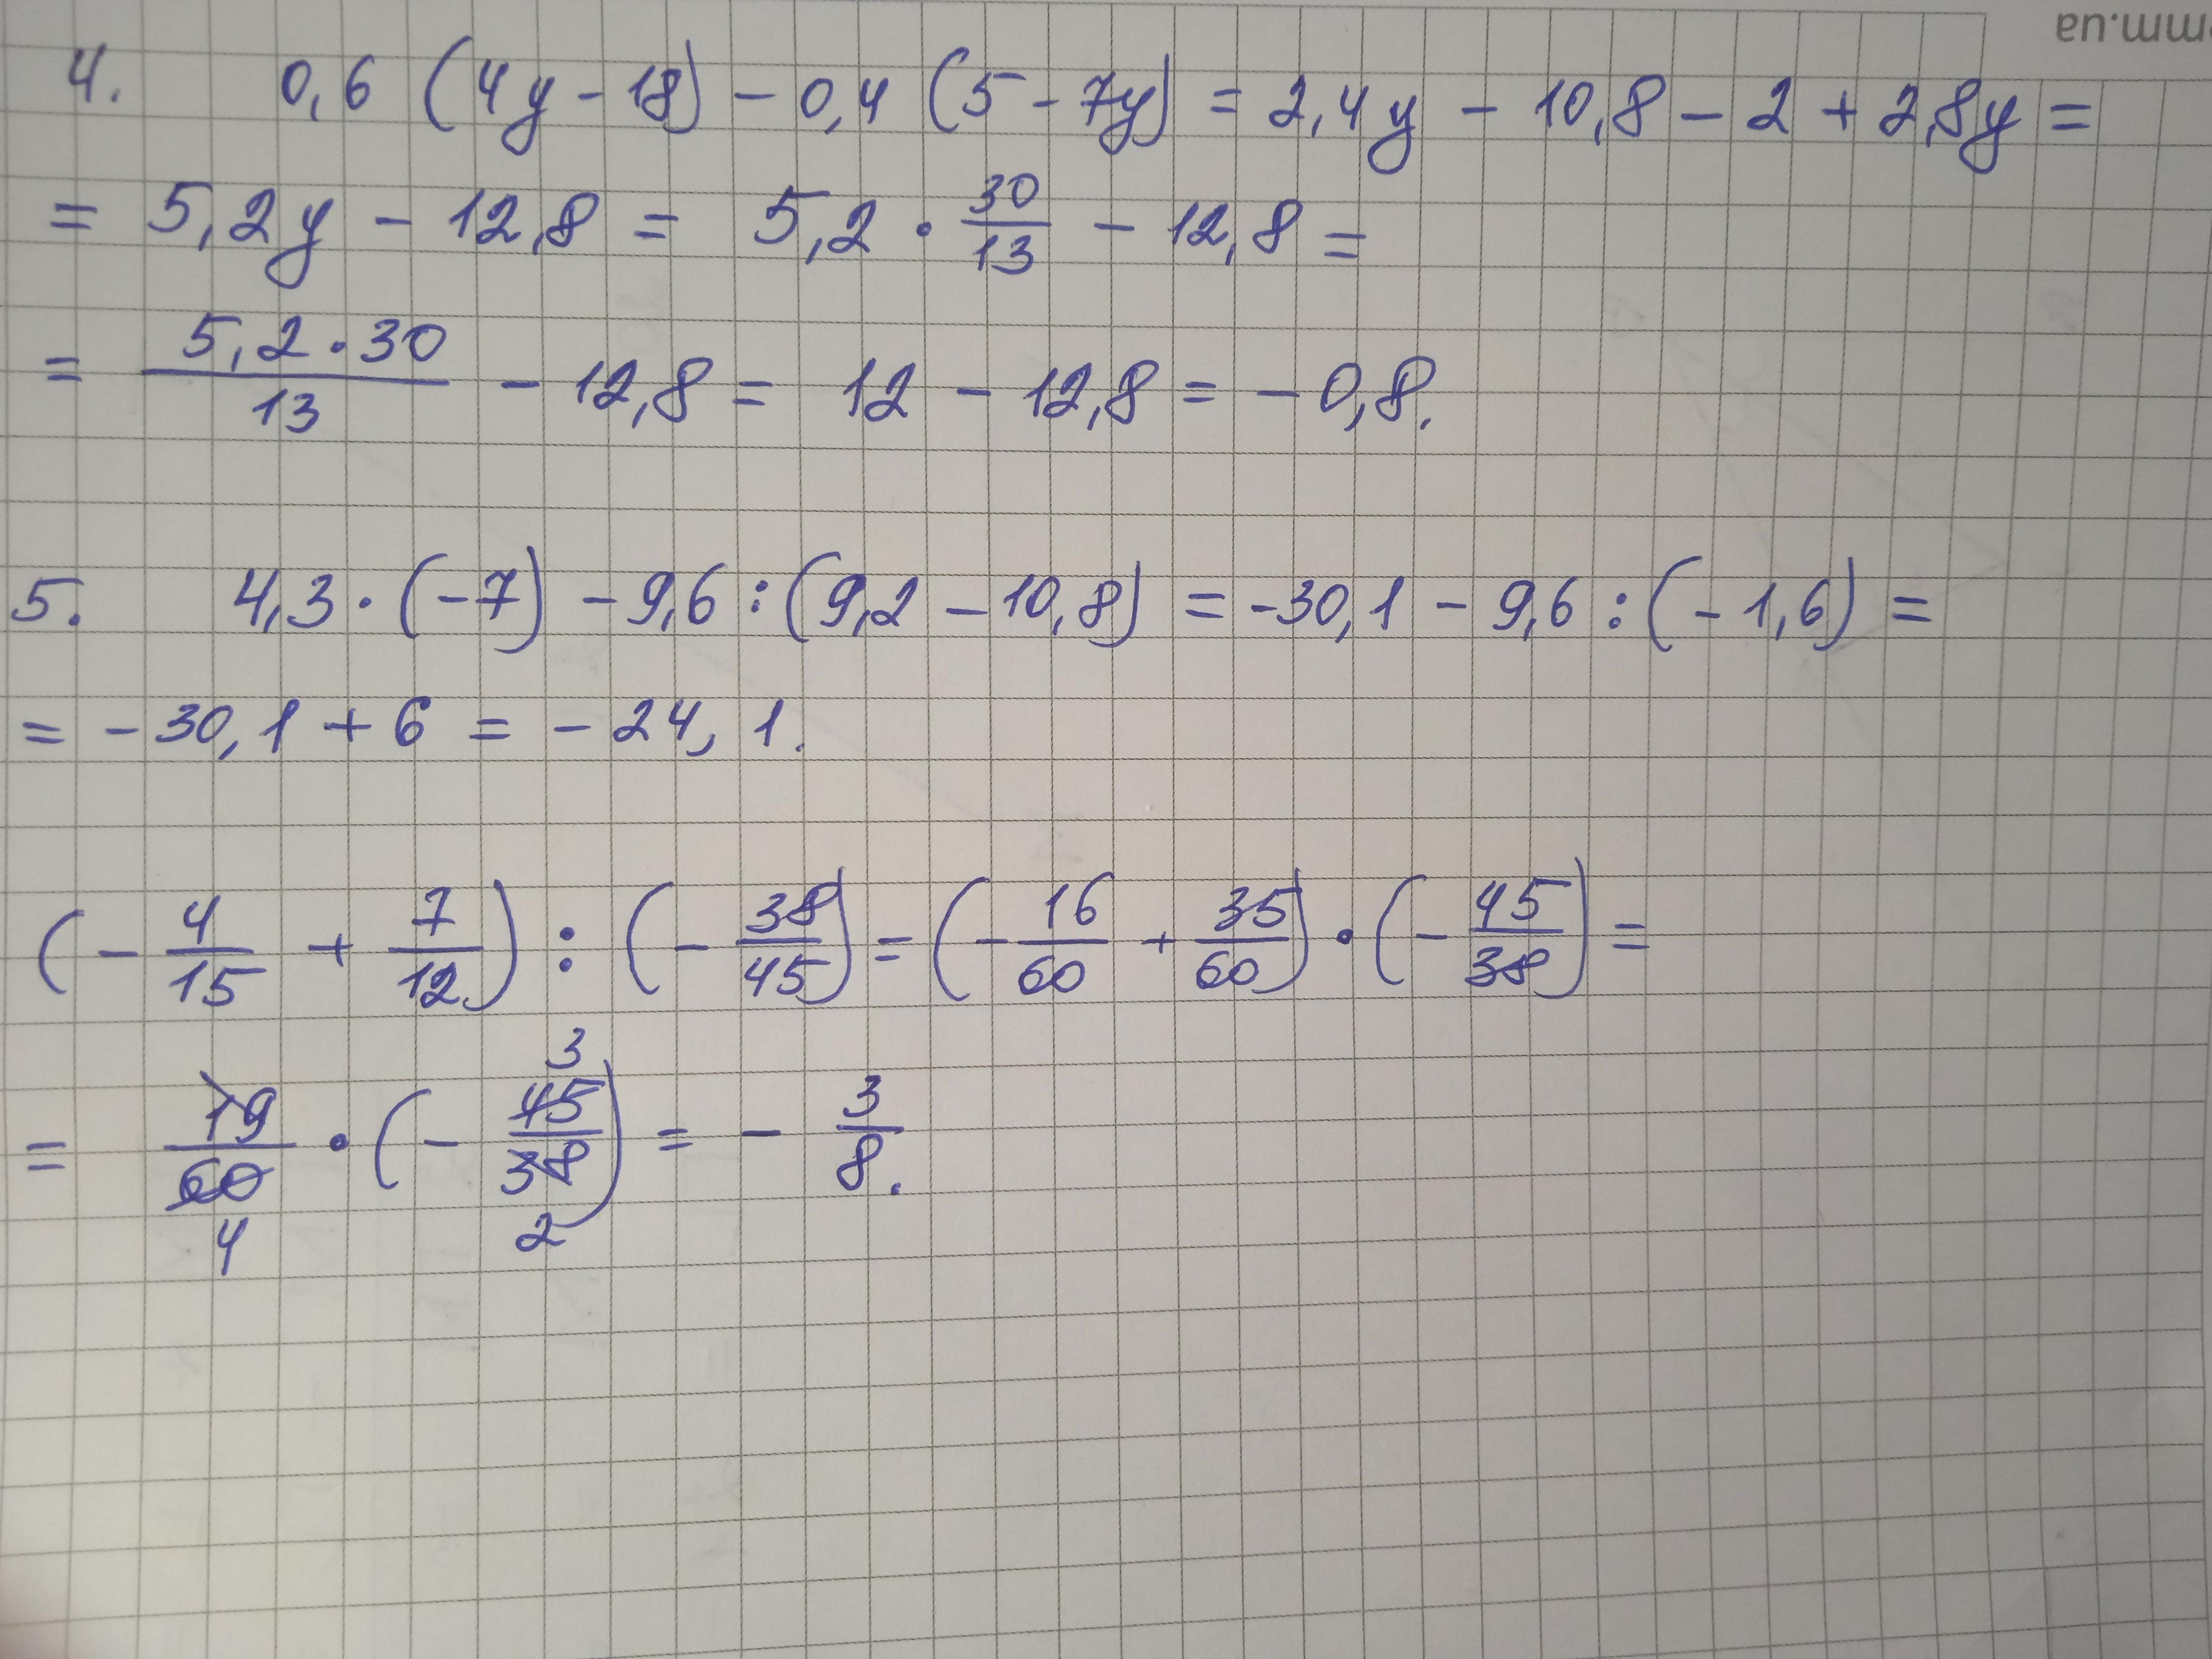 mm.ua
4. 0,6 (4y - 18) - 0,4 (5 - 7y) = 2,4y - 10,8 - 2 + 2,8y =
= 5,2y - 12,8 = 5,2 · 30/13 - 12,8 =
= 5,2·30/13 - 12,8 = 12 - 12,8 = - 0,8.
5. 4,3·(-7) - 9,6 : (9,2 - 10,8) = -30,1 - 9,6 : (- 1,6) =
= - 30,1 + 6 = - 24,1.
(- 4/15 + 7/12) : (- 38/45) = (- 16/60 + 35/60) · (- 45/38) =
3
= 19/60 · (- 45/38) = - 3/8.
4 2